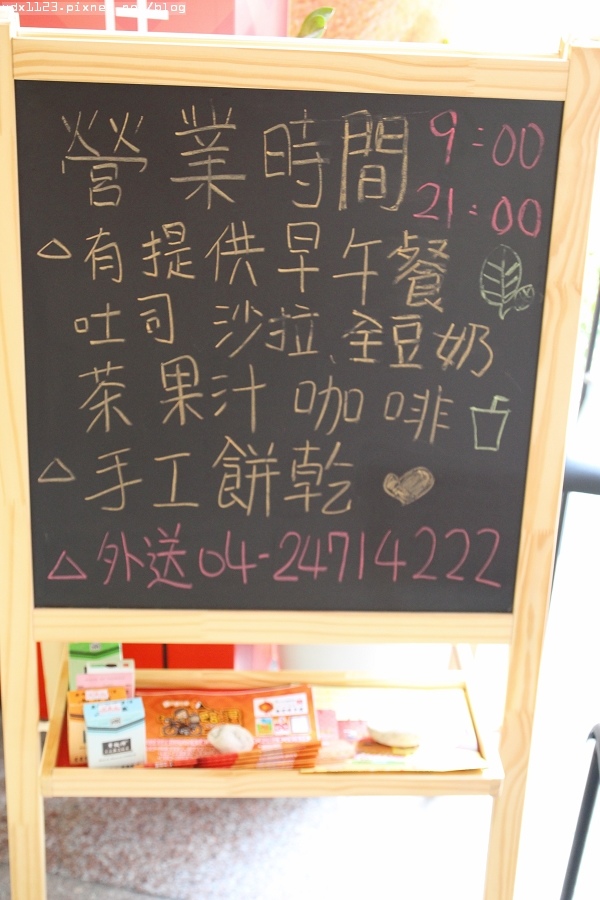 udx1123.pixnet.net/blog
營業時間 9:00
21:00
△有提供早午餐
吐司 沙拉、全豆奶
茶 果汁 咖啡
△手工餅乾
△外送 04-24714222